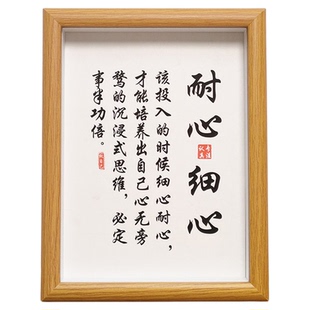 耐心细心
该投入的时候细心耐心，
才能培养出自己心无旁
骛的沉浸式思维，必定
事半功倍。